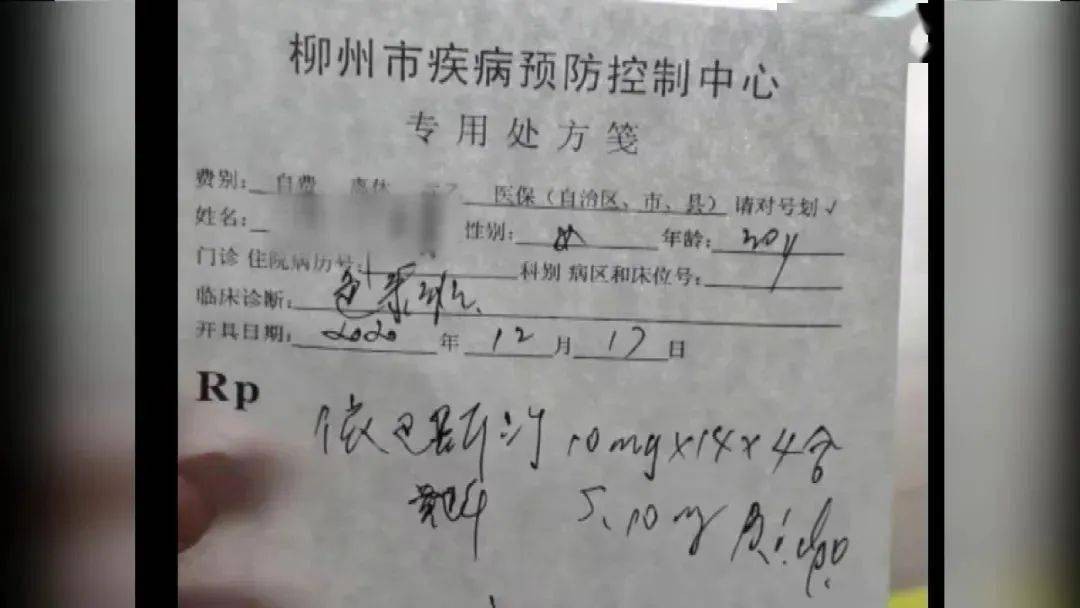 柳州市疾病预防控制中心
专用处方笺
费别: 自费 医保（自治区、市、县） 请对号划√
姓名: 性别: 女 年龄: 30y
门诊 住院病历号: 科别 病区和床位号:
临床诊断: 荨麻疹
开具日期: 2020 年 12 月 17 日
Rp
依巴斯汀 10mg×14×4盒
10mg